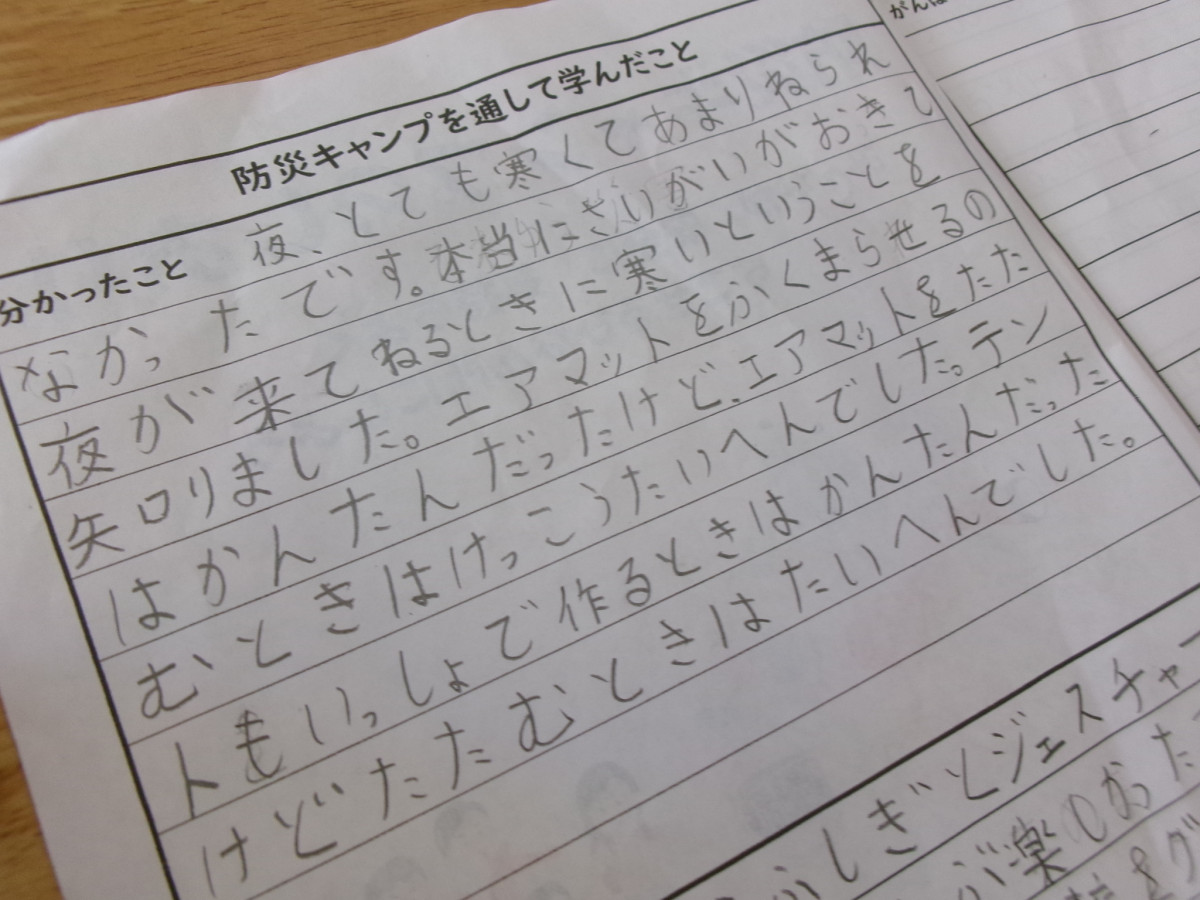 防災キャンプを通して学んだこと
分かったこと
夜、とても寒くてあまりねられ
なかったです。本当にさいがいがおきて
夜が来てねるときに寒いということを
知りました。エアマットをふくまらせるの
はかんたんだったけど、エアマットをたた
むときはけっこうたいへんでした。テン
トもいっしょで作るときはかんたんだった
けどたたむときはたいへんでした。
しぎとジェスチャー
楽しかった
がんば